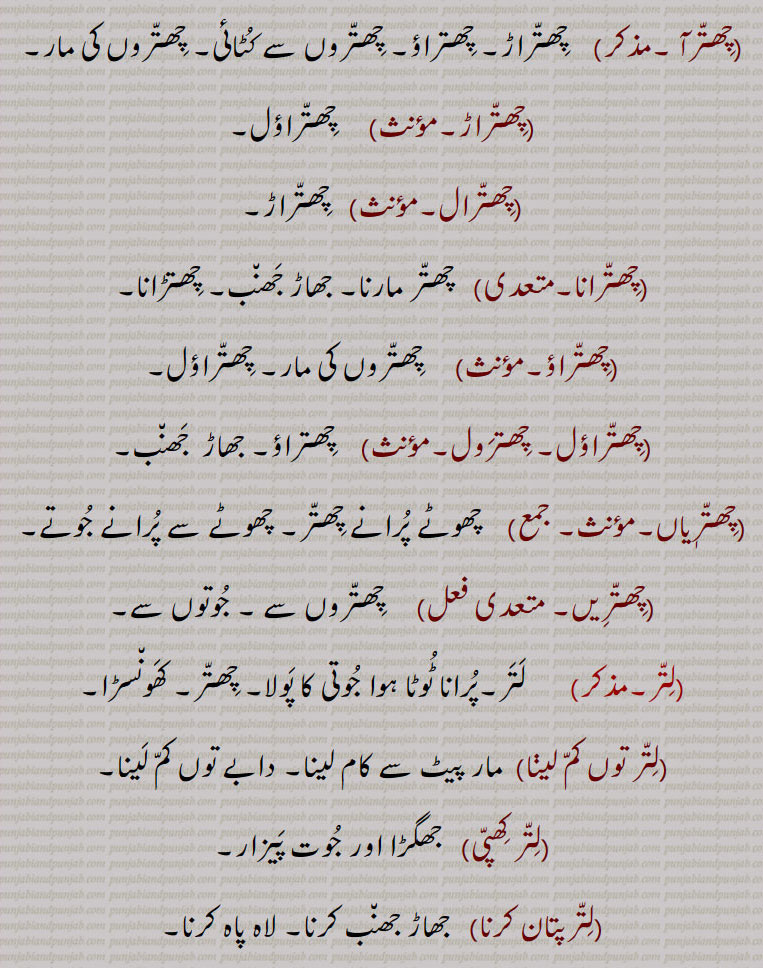 (چِھتّرآ ۔مذکر) چِھتّراڑ۔ چِھتراؤ۔ چِھتّروں سے کُٹائی۔ چِھتّروں کی مار۔
(چِھتّراڑ۔مؤنث) چِھتّراؤل۔
(چِھتّرال۔مؤنث) چِھتّراڑ۔
(چِھتّرانا۔متعدی) چھتّر مارنا۔ جھاڑ جَھنْب۔ چِھتڑانا۔
(چِھتّراؤ۔مؤنث) چِھتّروں کی مار۔ چِھتّراؤل۔
(چِھتّراؤل۔ چِھترَول۔مؤنث) چِھتراؤ۔ جھاڑ جَھنْب۔
(چِھتّرِیاں۔مؤنث۔ جمع) چھوٹے پُرانے چِھتّر۔ چھوٹے سے پُرانے جُوتے۔
(چِھتّرِیں۔ متعدی فعل) چِھتّروں سے ۔ جُوتوں سے۔
(لِتّر۔مذکر) لَتَر۔پُرانا ٹُوٹا ہوا جُوتی کا پَولا۔ چِھتّر۔ کَھونْسڑا۔
(لِتّر توں کمّ لینا) مار پیٹ سے کام لینا۔ دابے توں کمّ لَینا۔
(لِتّر کِھپّی) جھگڑا اور جُوت پَیزار۔
(لِتّر پتان کرنا) جھاڑ جھنْب کرنا۔ لاہ پاہ کرنا۔